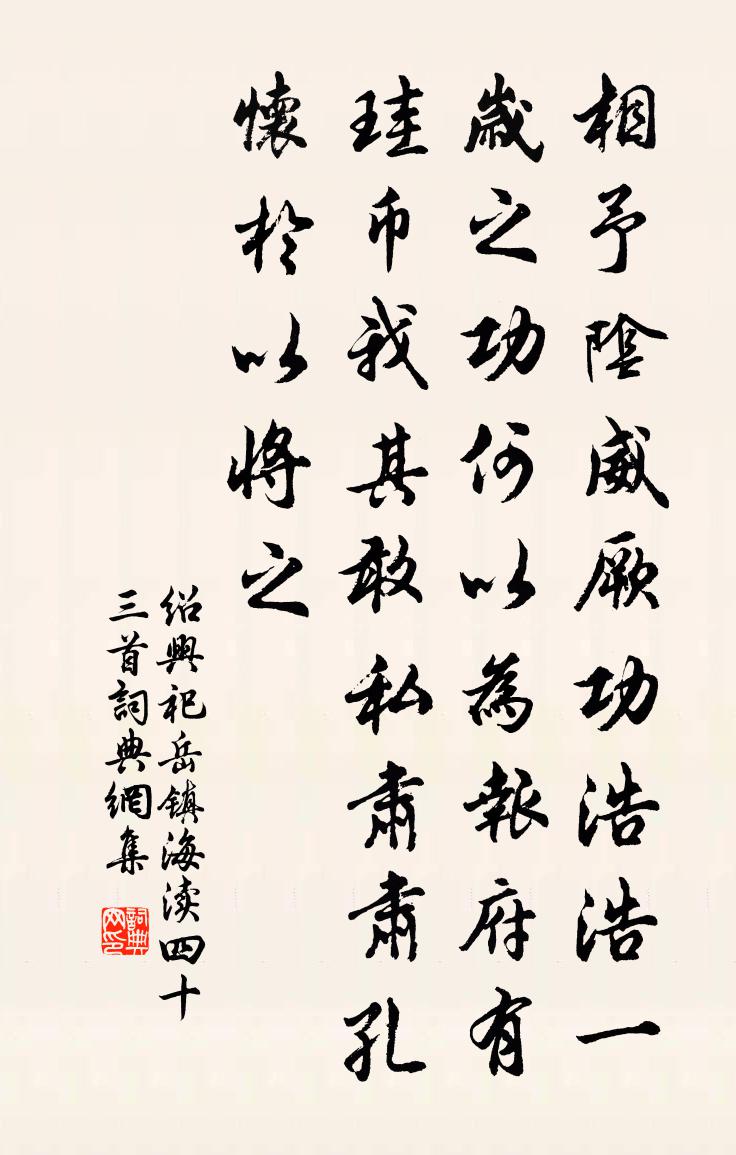 相予陰威厥功浩浩一
歲之功何以為報府有
珪币我其敢私肅肅孔
懷於以將之
紹興祀岳鎮海渎四十
三首詞典網集
詞典网印